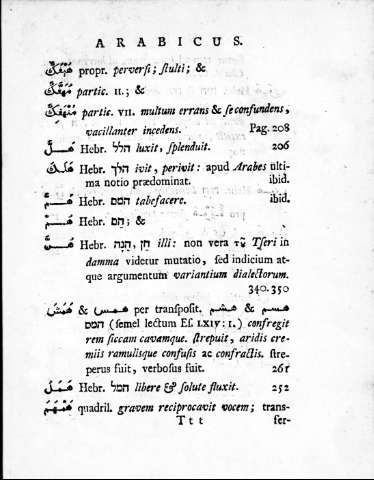 ARABICUS.
propr. perversi; stulti; &
partic. II; &
partic. VII. multum errans & se confundens,
vacillanter incedens. Pag. 208
Hebr. הלל luxit, splenduit. 206
هلك Hebr. הלך ivit, perivit: apud Arabes ulti-
ma notio prædominat. ibid.
Hebr. המס tabefacere. ibid.
Hebr. הם; &
Hebr. הן, הנה illi: non vera Tseri in
damma videtur mutatio, sed indicium at-
que argumentum variantium dialectorum.
340. 350
& همس per transposit. هشم & هسم
המס (semel lectum Es. LXIV: 1.) confregit
rem siccam cavamque. strepuit, aridis cre-
miis ramulisque confusis ac confractis. stre-
perus fuit, verbosus fuit. 261
همل Hebr. המל libere & solute fluxit. 252
quadril. gravem reciprocavit vocem; trans-
Ttt fer-